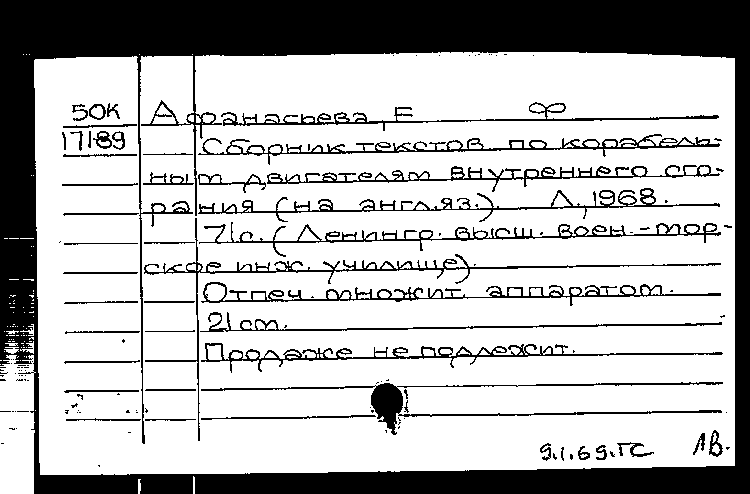 50К Афанасьева, Е ф
17189 Сборник текстов по корабель-
ным двигателям внутреннего сго-
рания (на англ.яз.). Л., 1968.
71с. (Ленингр. высш. воен.-мор-
ское инж. училище).
Отпеч. множит. аппаратом.
21 см.
Продаже не подлежит.
9.1.69.ГС 1В.